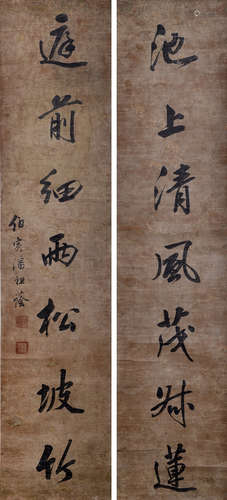 池上清風茂叔蓮
庭前細雨松坡竹
伯寅潘祖蔭